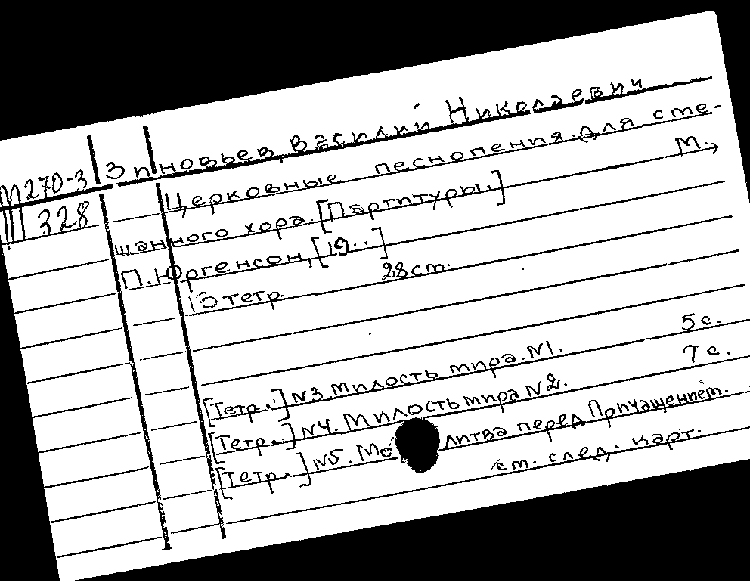 М270-3 Зиновьев, Василий Николаевич
III 328 Церковные песнопения для сме-
шанного хора. [Партитуры.] М.,
П. Юргенсон, [19..]
10 тетр. 28 см.
[Тетр.] №3. Милость мира. №1. 5 с.
[Тетр.] №4. Милость мира №2. 7 с.
[Тетр.] №5. Молитва перед Причащением.
см. след. карт.